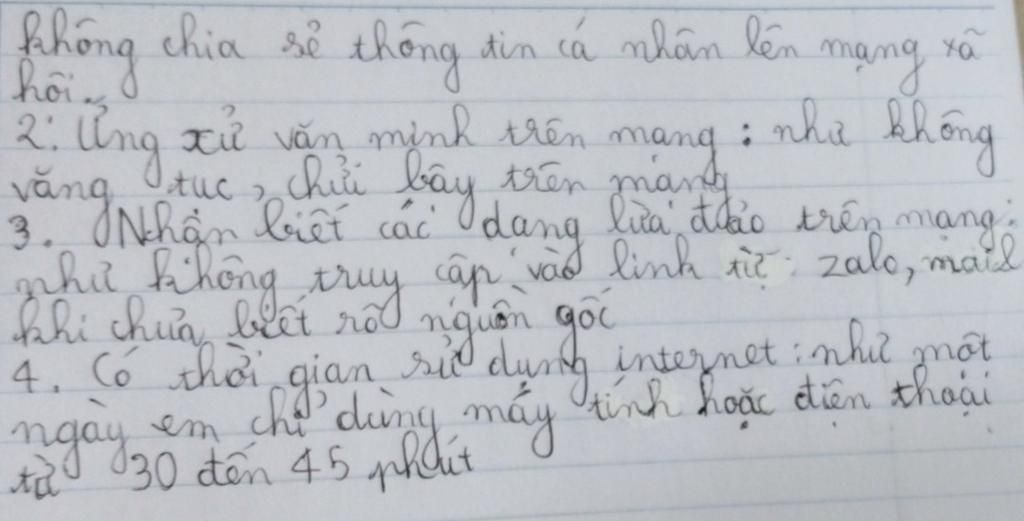 không chia sẻ thông tin cá nhân lên mạng xã
hội.
2. Ứng xử văn minh trên mạng : như không
văng tục, chửi bậy trên mạng
3. Nhận biết các dạng lừa đảo trên mạng:
như không truy cập vào link từ zalo, maid
khi chưa biết rõ nguồn gốc
4. Có thời gian sử dụng internet : như một
ngày em chỉ dùng máy tính hoặc điện thoại
từ 30 đến 45 phút